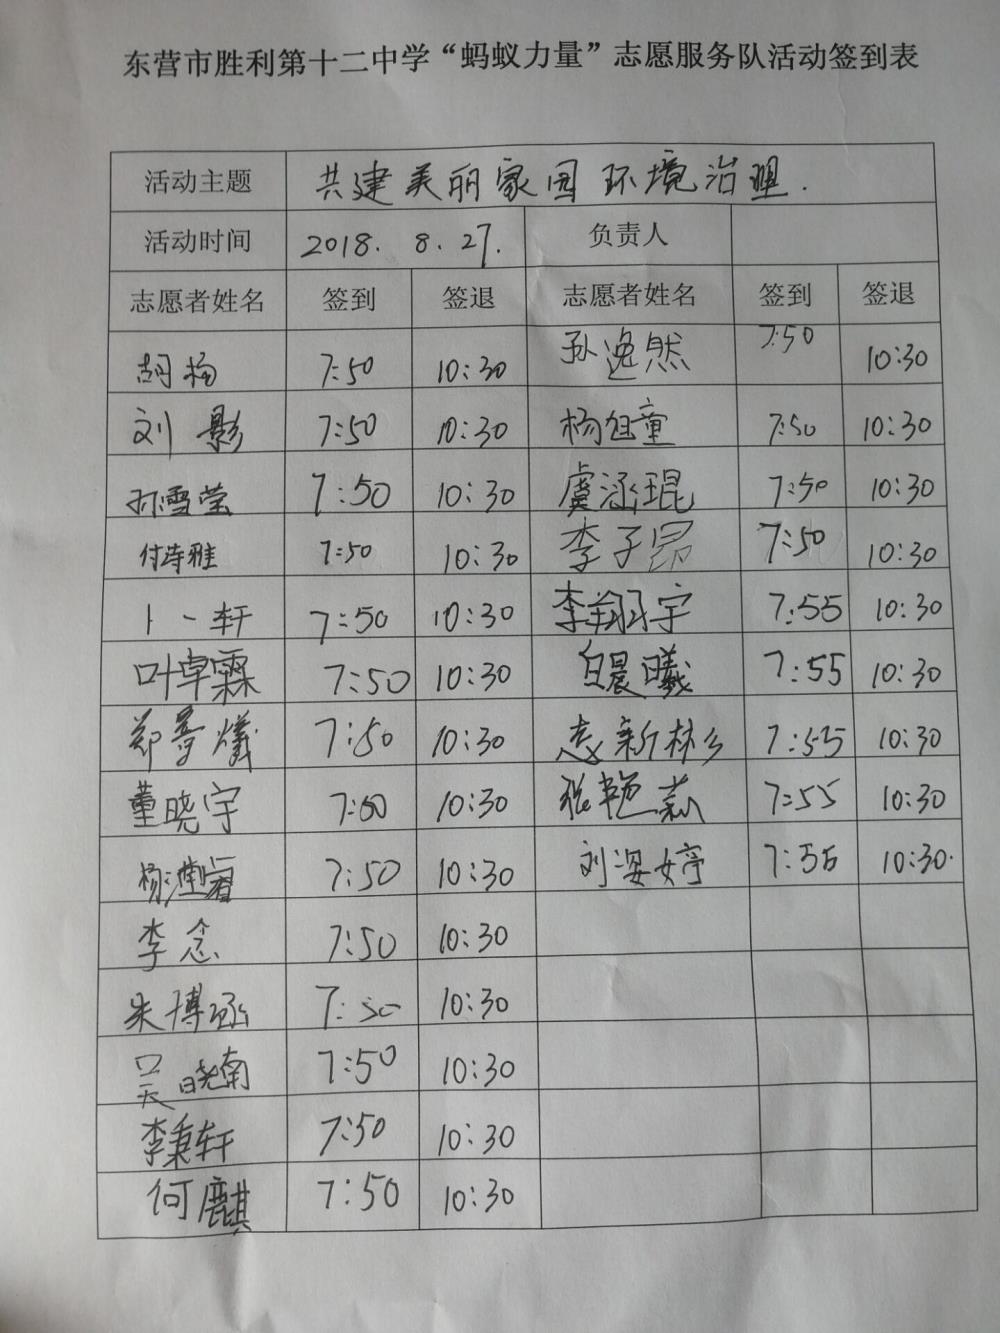 东营市胜利第十二中学“蚂蚁力量”志愿服务队活动签到表
活动主题 共建美丽家园环境治理.
活动时间 2018.8.27. 负责人
志愿者姓名 签到 签退 志愿者姓名 签到 签退
胡杨 7:50 10:30 孙逸然 7:50 10:30
刘影 7:50 10:30 杨旭童 7:50 10:30
孙雪莹 7:50 10:30 虞涵琨 7:50 10:30
付诗雅 7:50 10:30 李子昂 7:50 10:30
卜一轩 7:50 10:30 李翔宇 7:55 10:30
叶卓霖 7:50 10:30 白晨曦 7:55 10:30
郑 7:50 10:30 新 7:55 10:30
董晓宇 7:50 10:30 张艳 7:55 10:30
杨 7:50 10:30 刘姿婷 7:55 10:30.
李念 7:50 10:30
朱博涵 7:50 10:30
吴晓南 7:50 10:30
李秉轩 7:50 10:30
何麒 7:50 10:30